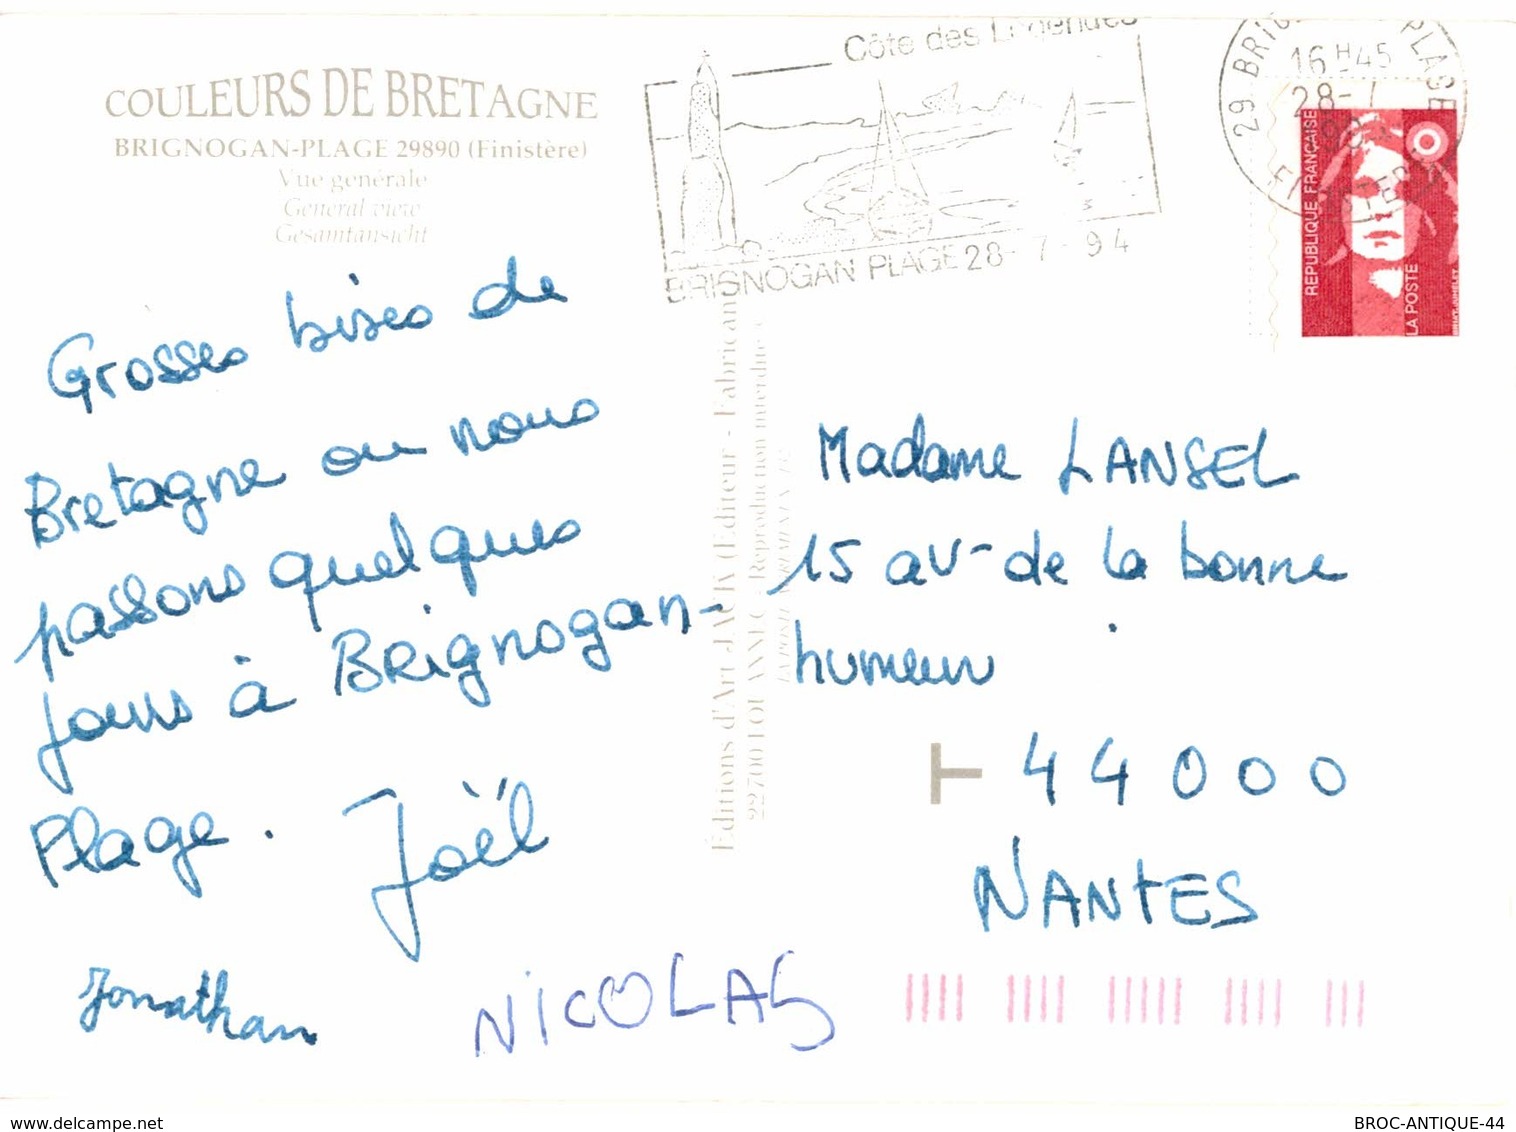 COULEURS DE BRETAGNE
BRIGNOGAN-PLAGE 29890 (Finistère)
Vue générale
General view
Gesamtansicht
Côte des Légendes
BRIGNOGAN PLAGE 28-7-94
16H45
28-7
FINISTERE
REPUBLIQUE FRANÇAISE
LA POSTE
Grosses bises de
Bretagne ou nous
passons quelques
jours à Brignogan-
Plage.
Joël
Jonathan
NICOLAS
Éditions d'Art JACK (Editeur - Fabricant)
22700 LOUANNEC - Reproduction interdite
Madame LANSEL
15 av- de la bonne
humeur
44000
NANTES
delcampe.net
BROC-ANTIQUE-44